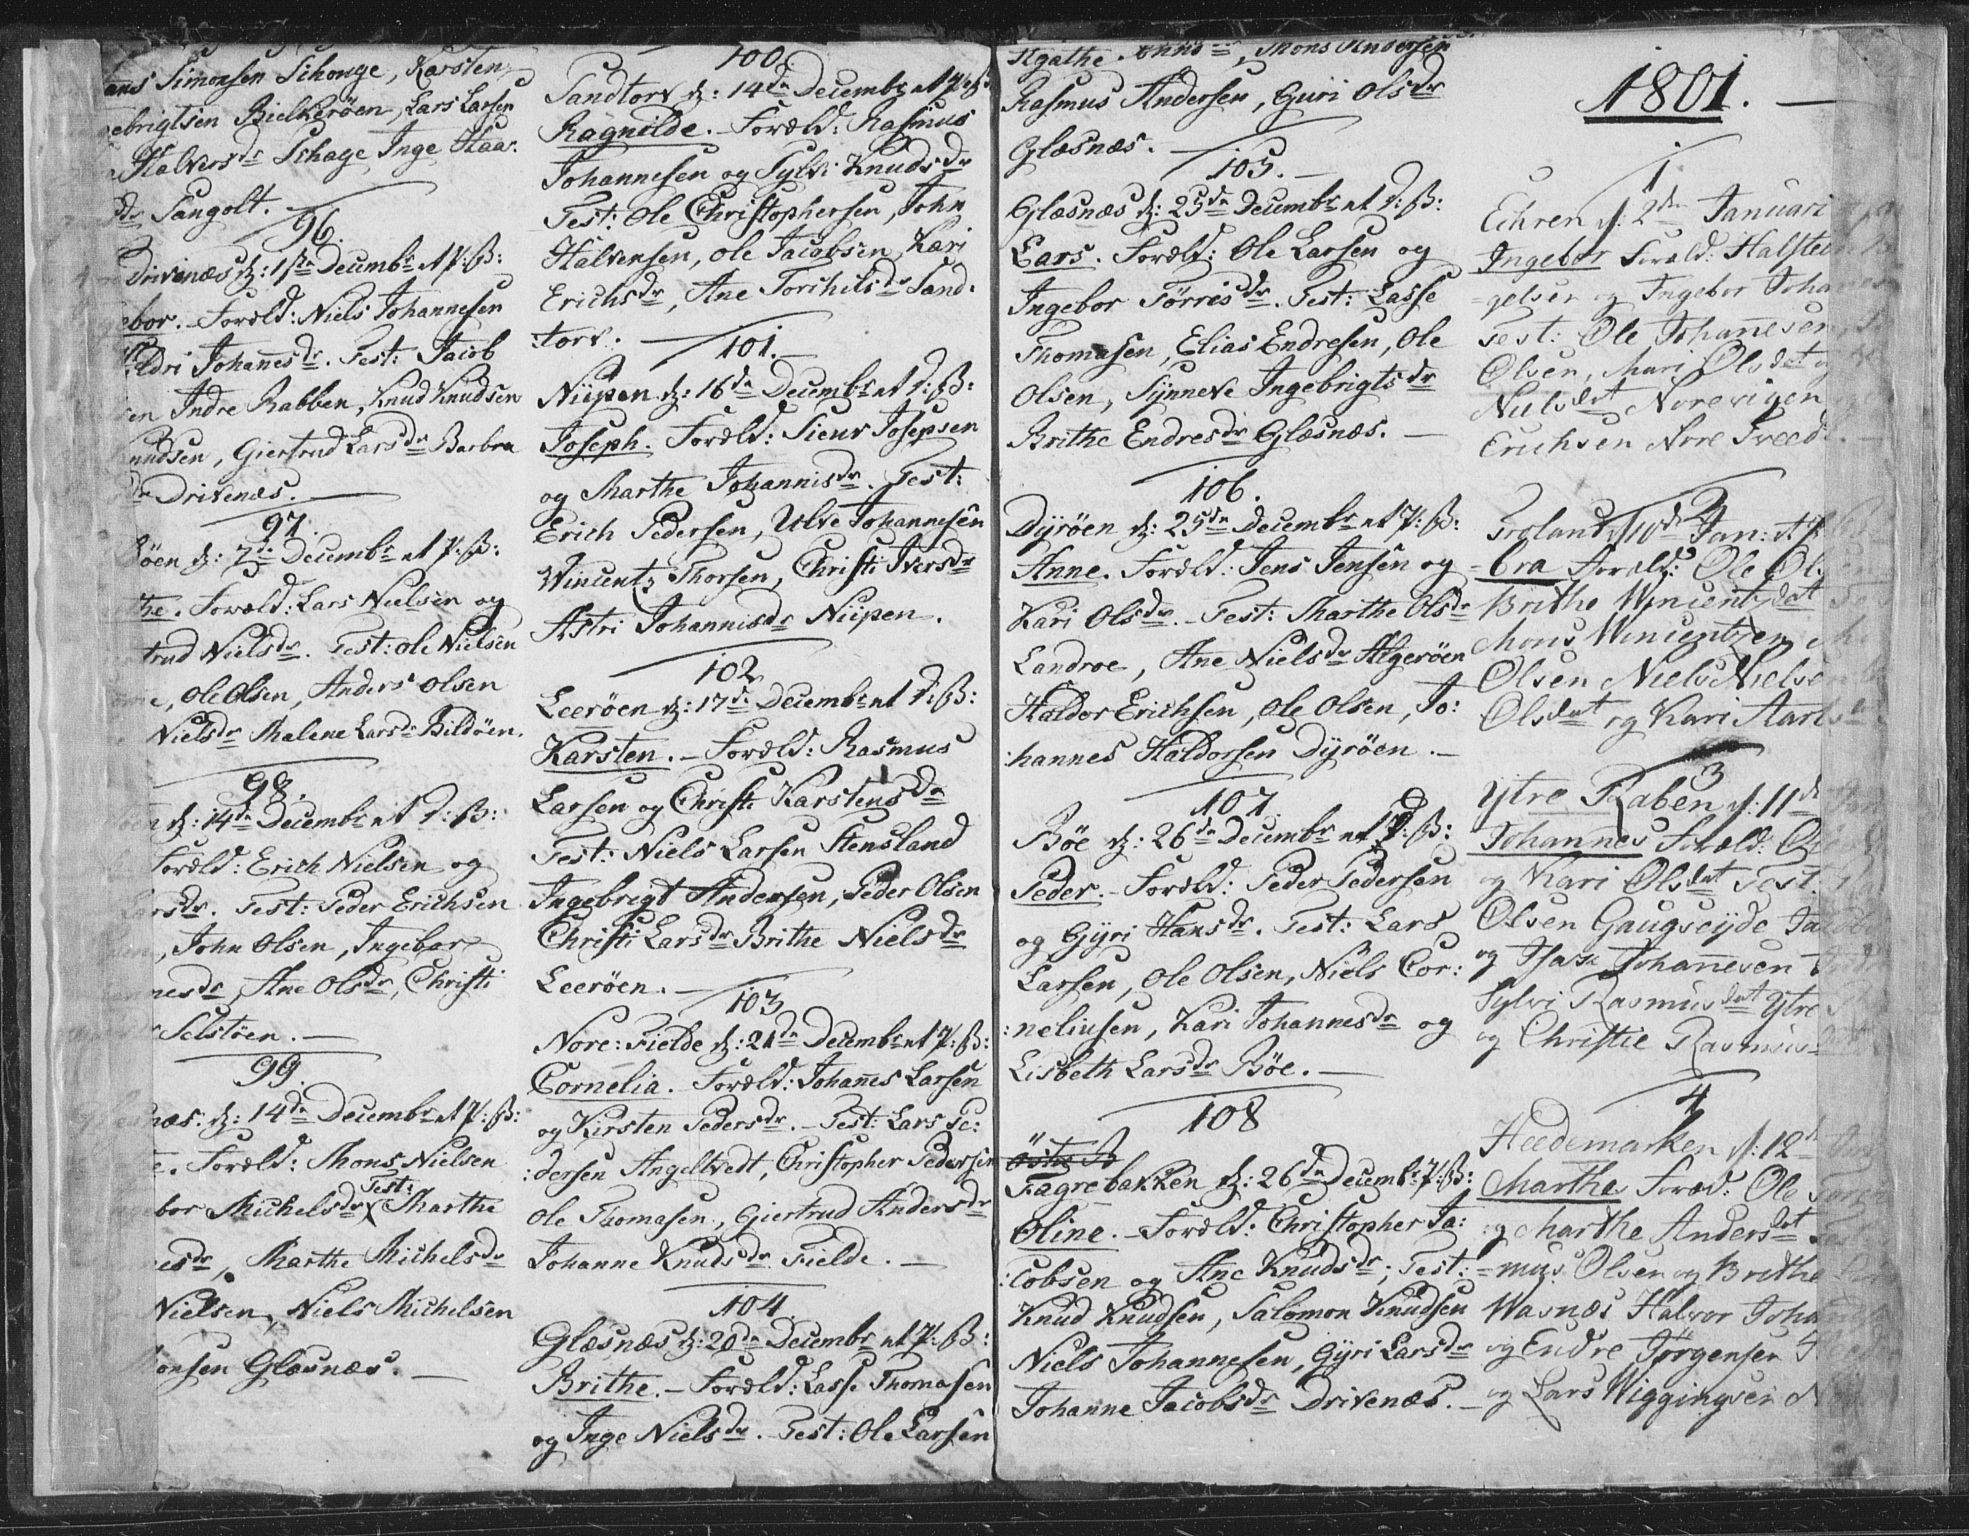 Simonsen Schouge, Karsten
ebrigtsen Bielkeröen, Lars Larsen
Halversdr Schage, Inge Haa:
dr Sangolt.
96.
Drivenæs d: 1ste Decembr
ebor. Foreld: Niels Johannesen
Johanesdr. Test: Jacob
Indre Rabben, Knud Knudsen
nudsen, Giertrud Larsdr Barbra
Drivenæs.
97.
öen d: 7de Decembr
the. Foreld: Lars Nielsen og
trud Nielsdr. Test: Ole Nielsen
Ole Olsen, Anders Olsen
Nielsdr Malene Larsdr Bildöen.
98.
d: 14de Decembr
Foreld: Erich Nielsen og
Larsdr. Test: Peder Erichsen
John Olsen, Ingebor
nesdr, Ane Olsdr, Christi
Selstöen.
99.
næs. d: 14de Decembr
Foreld: Mons Nielsen
bor Michelsdr Test: Marthe
esdr, Marthe Michelsdr
Nielsen, Niels Michelsen
onsen Glæsnæs.
100
Sandtorv d: 14de Decembr
Ragnilde. Foreld: Rasmus
Johannesen og Sylvi Knudsdr
Test: Ole Christophersen, John
Halvensen, Ole Jacobsen, Kari
Erichsdr, Ane Torchilsdr Sand:
:torv.
101.
Niipen d: 16de Decembr
Joseph. Foreld: Sieur Josepsen
og Marthe Johannisdr. Test:
Erich Pedersen, Ulve Johannesen
Wincentz Thorsen, Christi Iversdr
Astri Johannisdr Niipen.
102
Leeröen d: 17de Decembr
Karsten. Foreld: Rasmus
Larsen og Christi Karstensdr
Test: Niels Larsen Stensland
Ingebrigt Andersen, Peder Olsen
Christi Larsdr Brithe Nielsdr
Leeröen.
103
Nore: Fielde d: 21de Decembr
Cornelia. Foreld: Johannes Larsen
og Kirsten Pedersdr. Test: Lars Pe:
:dersen Angeltvedt, Christopher Pedersen
Ole Thomasen, Giertrud Andersdr
Johanne Knudsdr Fielde.
104
Glæsnæs d: 20de Decembr
Brithe. Foreld: Lasse Thomasen
og Inge Nielsdr. Test: Ole Larsen
Agathe, Mons Andersen
Rasmus Andersen, Guri Olsdr
Glæsnæs.
105.
Glæsnæs d: 25de Decembr
Lars. Foreld: Ole Larsen og
Ingebor Törresdr. Test: Lasse
Thomasen, Elias Endresen, Ole
Olsen, Synneve Ingebrigtsdr
Brithe Endresdr Glæsnæs.
106.
Dyröen d: 25de Decembr
Anne. Foreld: Jens Jensen og
Kari Olsdr. Test: Marthe Olsdr
Landroe, Ane Nielsdr Algeröen
Haldor Erichsen, Ole Olsen, Jo:
:hannes Haldorsen Dyröen.
107
Böe d: 26de Decembr
Peder. Foreld: Peder Pedersen
og Gyri Hansdr. Test: Lars
Larsen, Ole Olsen, Niels Cor:
:neliusen, Kari Johannesdr og
Lisbeth Larsdr Böe.
108
Fagrebakken d: 26de Decembr
Oline. Foreld: Christopher Ja:
:cobsen og Ane Knudsdr; Test:
Knud Knudsen, Salomon Knudsen
Niels Johannesen, Gyri Larsdr
Johanne Jacobsdr Drivenæs.
1801.
1.
Echren d: 2den Januari
Ingebor Foræld: Halsten
gelsen og Ingebor Johan
Test: Ole Johanesen
Olsen, Mari Olsdat og
Nielsdat Norevigen
Erichsen Nore Tveed
2
Troland d: 10de Jan:
bra Foræld: Ole Ol
Brithe Wincentzdat
Mons Wincentzen
Olsen Niels Nielsen
Olsdat og Kari Aar
3
Ytre Raben d: 11de
Johannes Foræld:
og Kari Olsdat Test.
Olsen Gaugseyde Jacob
og Isak Johannesen
Sylvi Rasmusdat Ytre
og Christie Rasmus
4
Heedemarken d: 12te
Marthe Foræd: Ole
og Marthe Andersdat
=mus Olsen og Brethe
Wasnæs Halvor Joha
og Endre Jörgensen
og Lars Wiggingsen